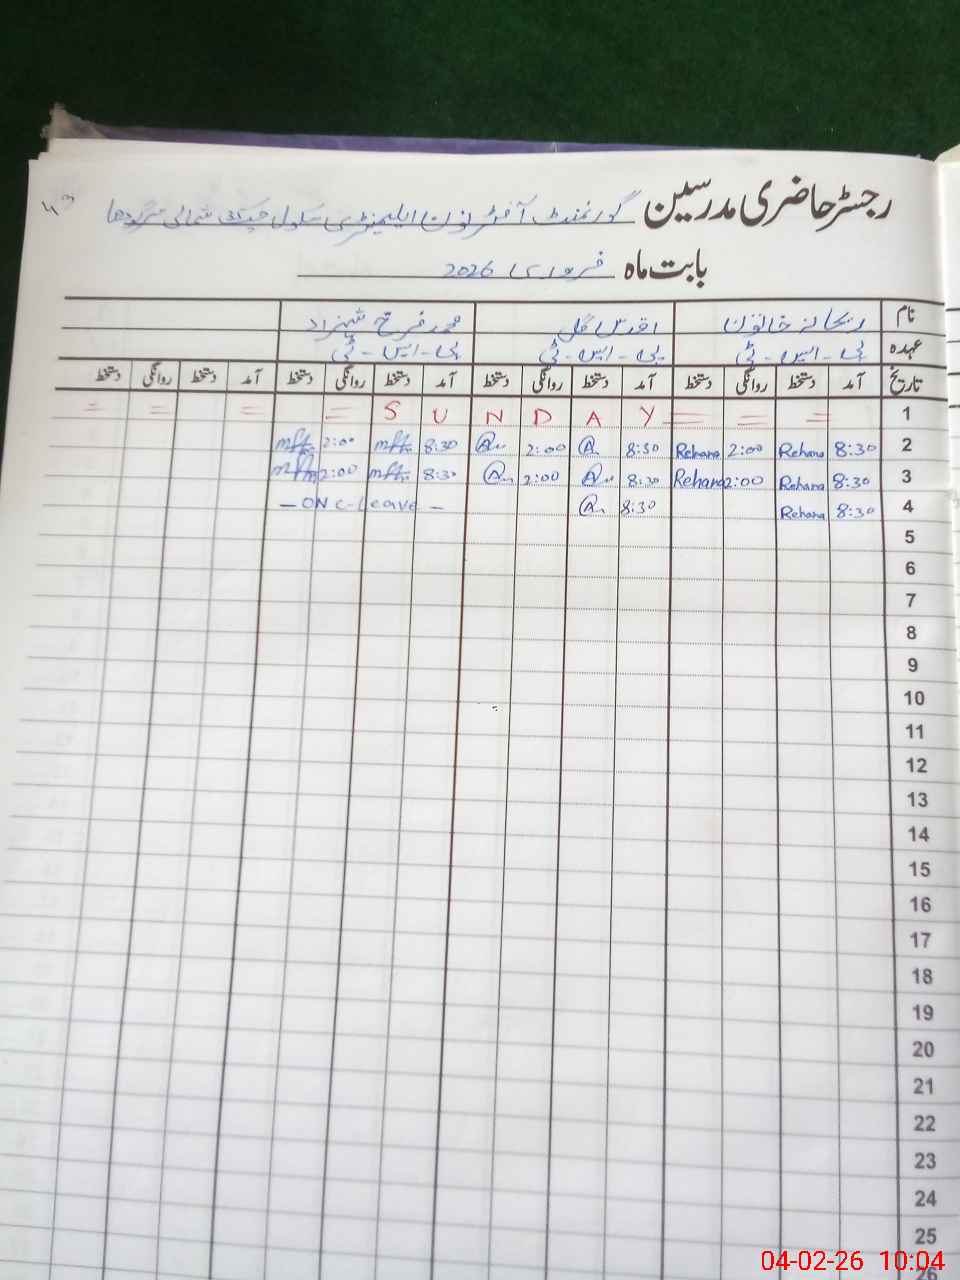 رجسٹر حاضری مدرسین گورنمنٹ آفٹر نون ایلیمنٹری سکول شمالی سرگودھا
بابت ماہ فروری 2026
نام ریحانہ خاتون اقدس گل محمد فرخ شہزاد
عہدہ پی-ایس-ٹی پی-ایس-ٹی پی-ایس-ٹی
تاریخ آمد دستخط روانگی دستخط آمد دستخط روانگی دستخط آمد دستخط روانگی دستخط آمد دستخط روانگی دستخط
= = = = S U N D A Y = = = 1
2:00 8:30 2:00 8:30 Rehana 2:00 Rehana 8:30 2
2:00 8:30 2:00 8:30 Rehana 2:00 Rehana 8:30 3
- ON C-Leave - 8:30 Rehana 8:30 4
5
6
7
8
9
10
11
12
13
14
15
16
17
18
19
20
21
22
23
24
25
26
04-02-26 10:04